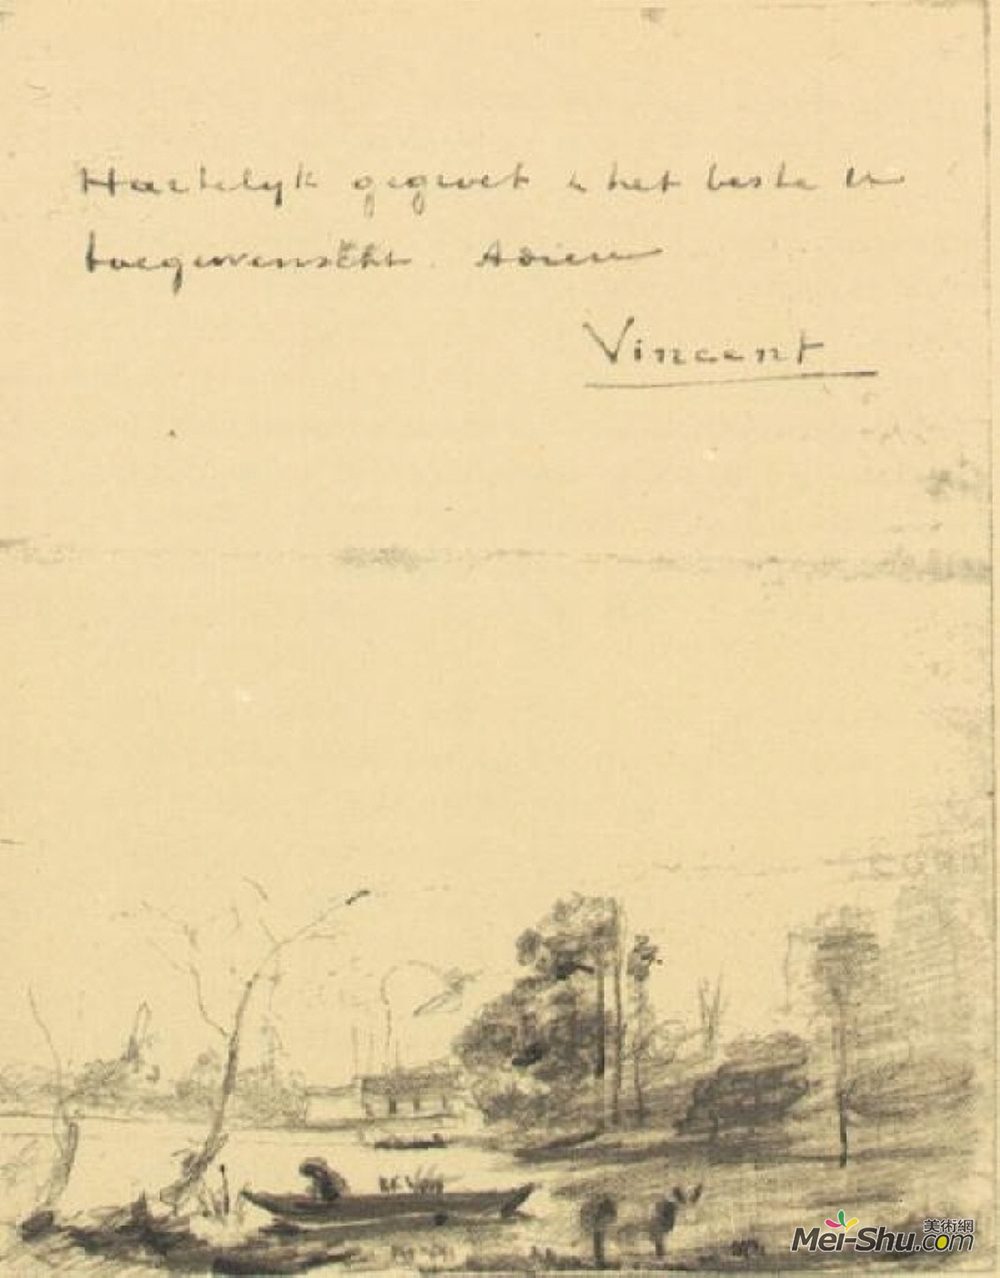 Hartelyk gegroet & het beste U
toegewenscht. Adieu
Vincent
Mei-Shu.com
美術網